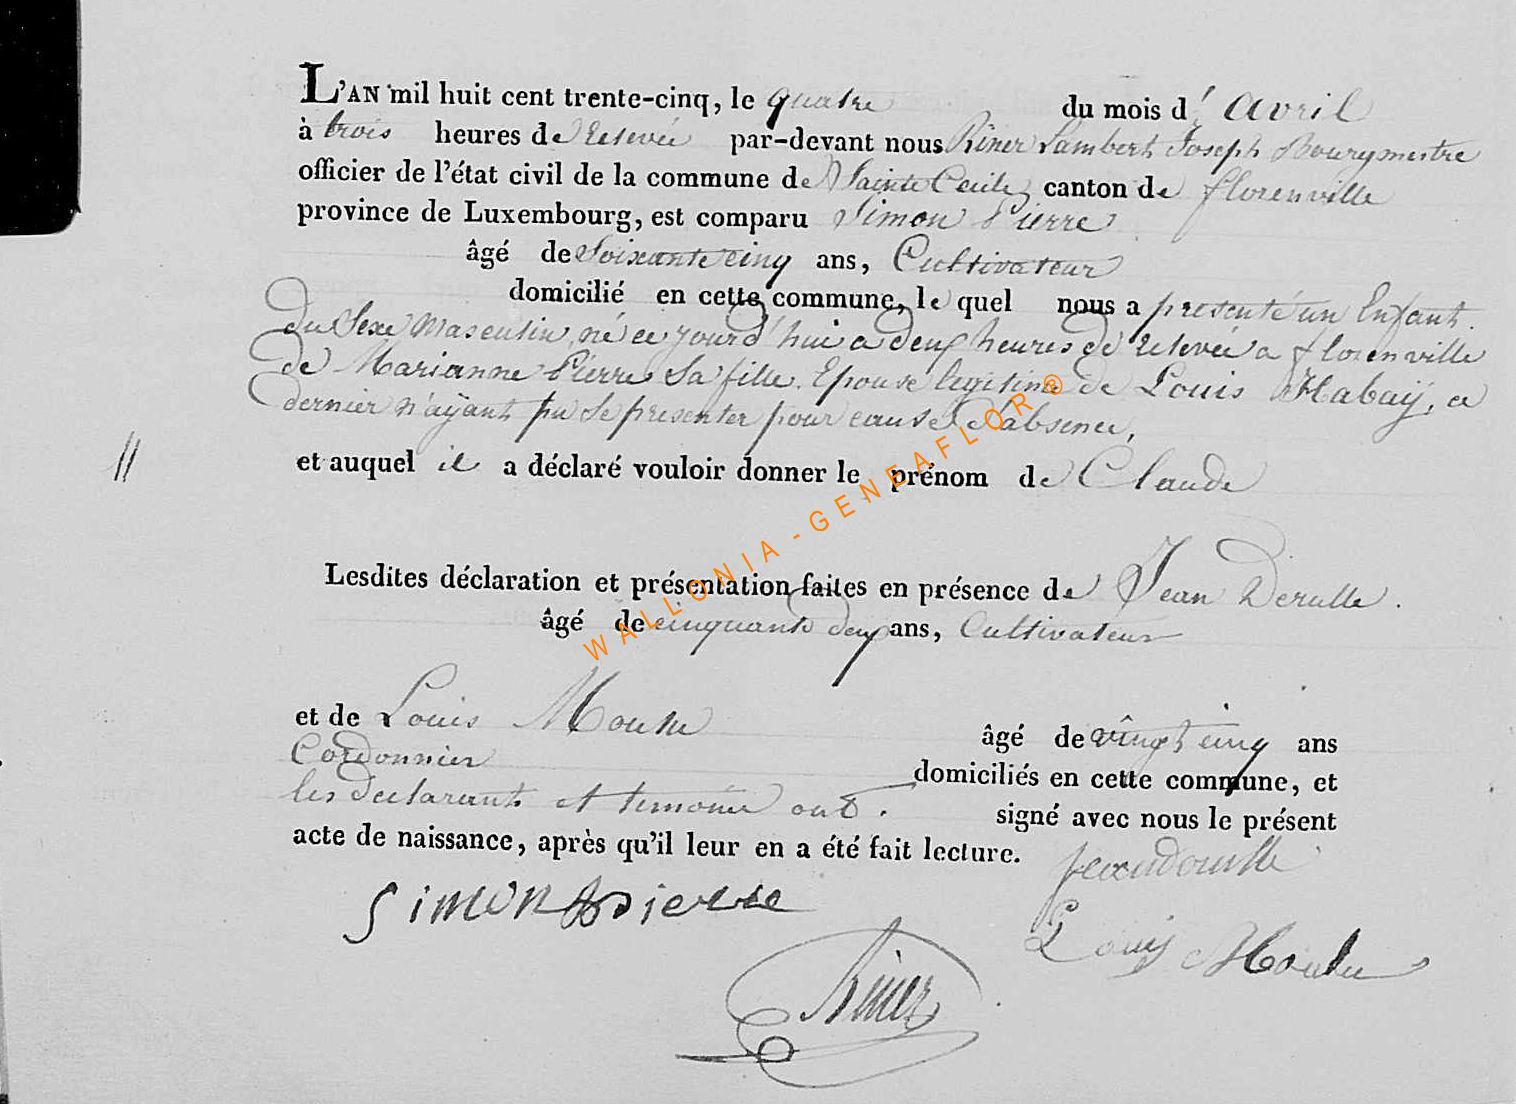 L'AN mil huit cent trente-cinq, le quatre du mois d' avril
à trois heures de relevée par-devant nous Riner Lambert Joseph Bourgmestre
officier de l'état civil de la commune de Sainte Cecile canton de florenville
province de Luxembourg, est comparu Simon Pierre
âgé de Soixante cinq ans, Cultivateur
domicilié en cette commune, le quel nous a presenté un Enfant
du Sexe Masculin, né ce jourd'hui a deux heures de relevée a florenville
de Marianne Pierre Sa fille. Epouse legitime de Louis Habaÿ, ce
dernier n'aÿant pu se presenter pour cause d'absence,
et auquel il a déclaré vouloir donner le prénom de Claude
Lesdites déclaration et présentation faites en présence de Jean Derulle.
âgé de cinquante deux ans, Cultivateur
et de Louis âgé de vingt cinq ans
Cordonnier
domiciliés en cette commune, et
les declarant et temoins ont. signé avec nous le présent
acte de naissance, après qu'il leur en a été fait lecture.
Simon Pierre
Louis
Riner
WALLONIA - GENEAFLOR ®